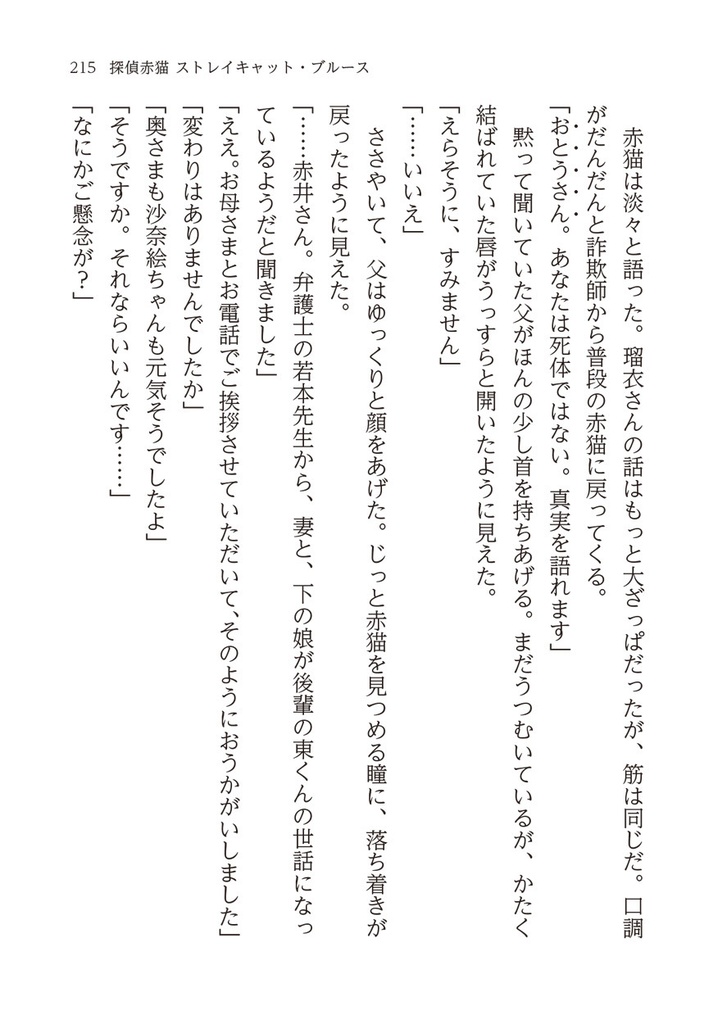 215 探偵赤猫 ストレイキャット・ブルース
　赤猫は淡々と語った。瑠衣さんの話はもっと大ざっぱだったが、筋は同じだ。口調
がだんだんと詐欺師から普段の赤猫に戻ってくる。
「おとうさん。あなたは死体ではない。真実を語れます」
　黙って聞いていた父がほんの少し首を持ちあげる。まだうつむいているが、かたく
結ばれていた唇がうっすらと開いたように見えた。
「えらそうに、すみません」
「……いいえ」
　ささやいて、父はゆっくりと顔をあげた。じっと赤猫を見つめる瞳に、落ち着きが
戻ったように見えた。
「……赤井さん。弁護士の若本先生から、妻と、下の娘が後輩の東くんの世話になっ
ているようだと聞きました」
「ええ。お母さまとお電話でご挨拶させていただいて、そのようにおうかがいしました」
「変わりはありませんでしたか」
「奥さまも沙奈絵ちゃんも元気そうでしたよ」
「そうですか。それならいいんです……」
「なにかご懸念が？」